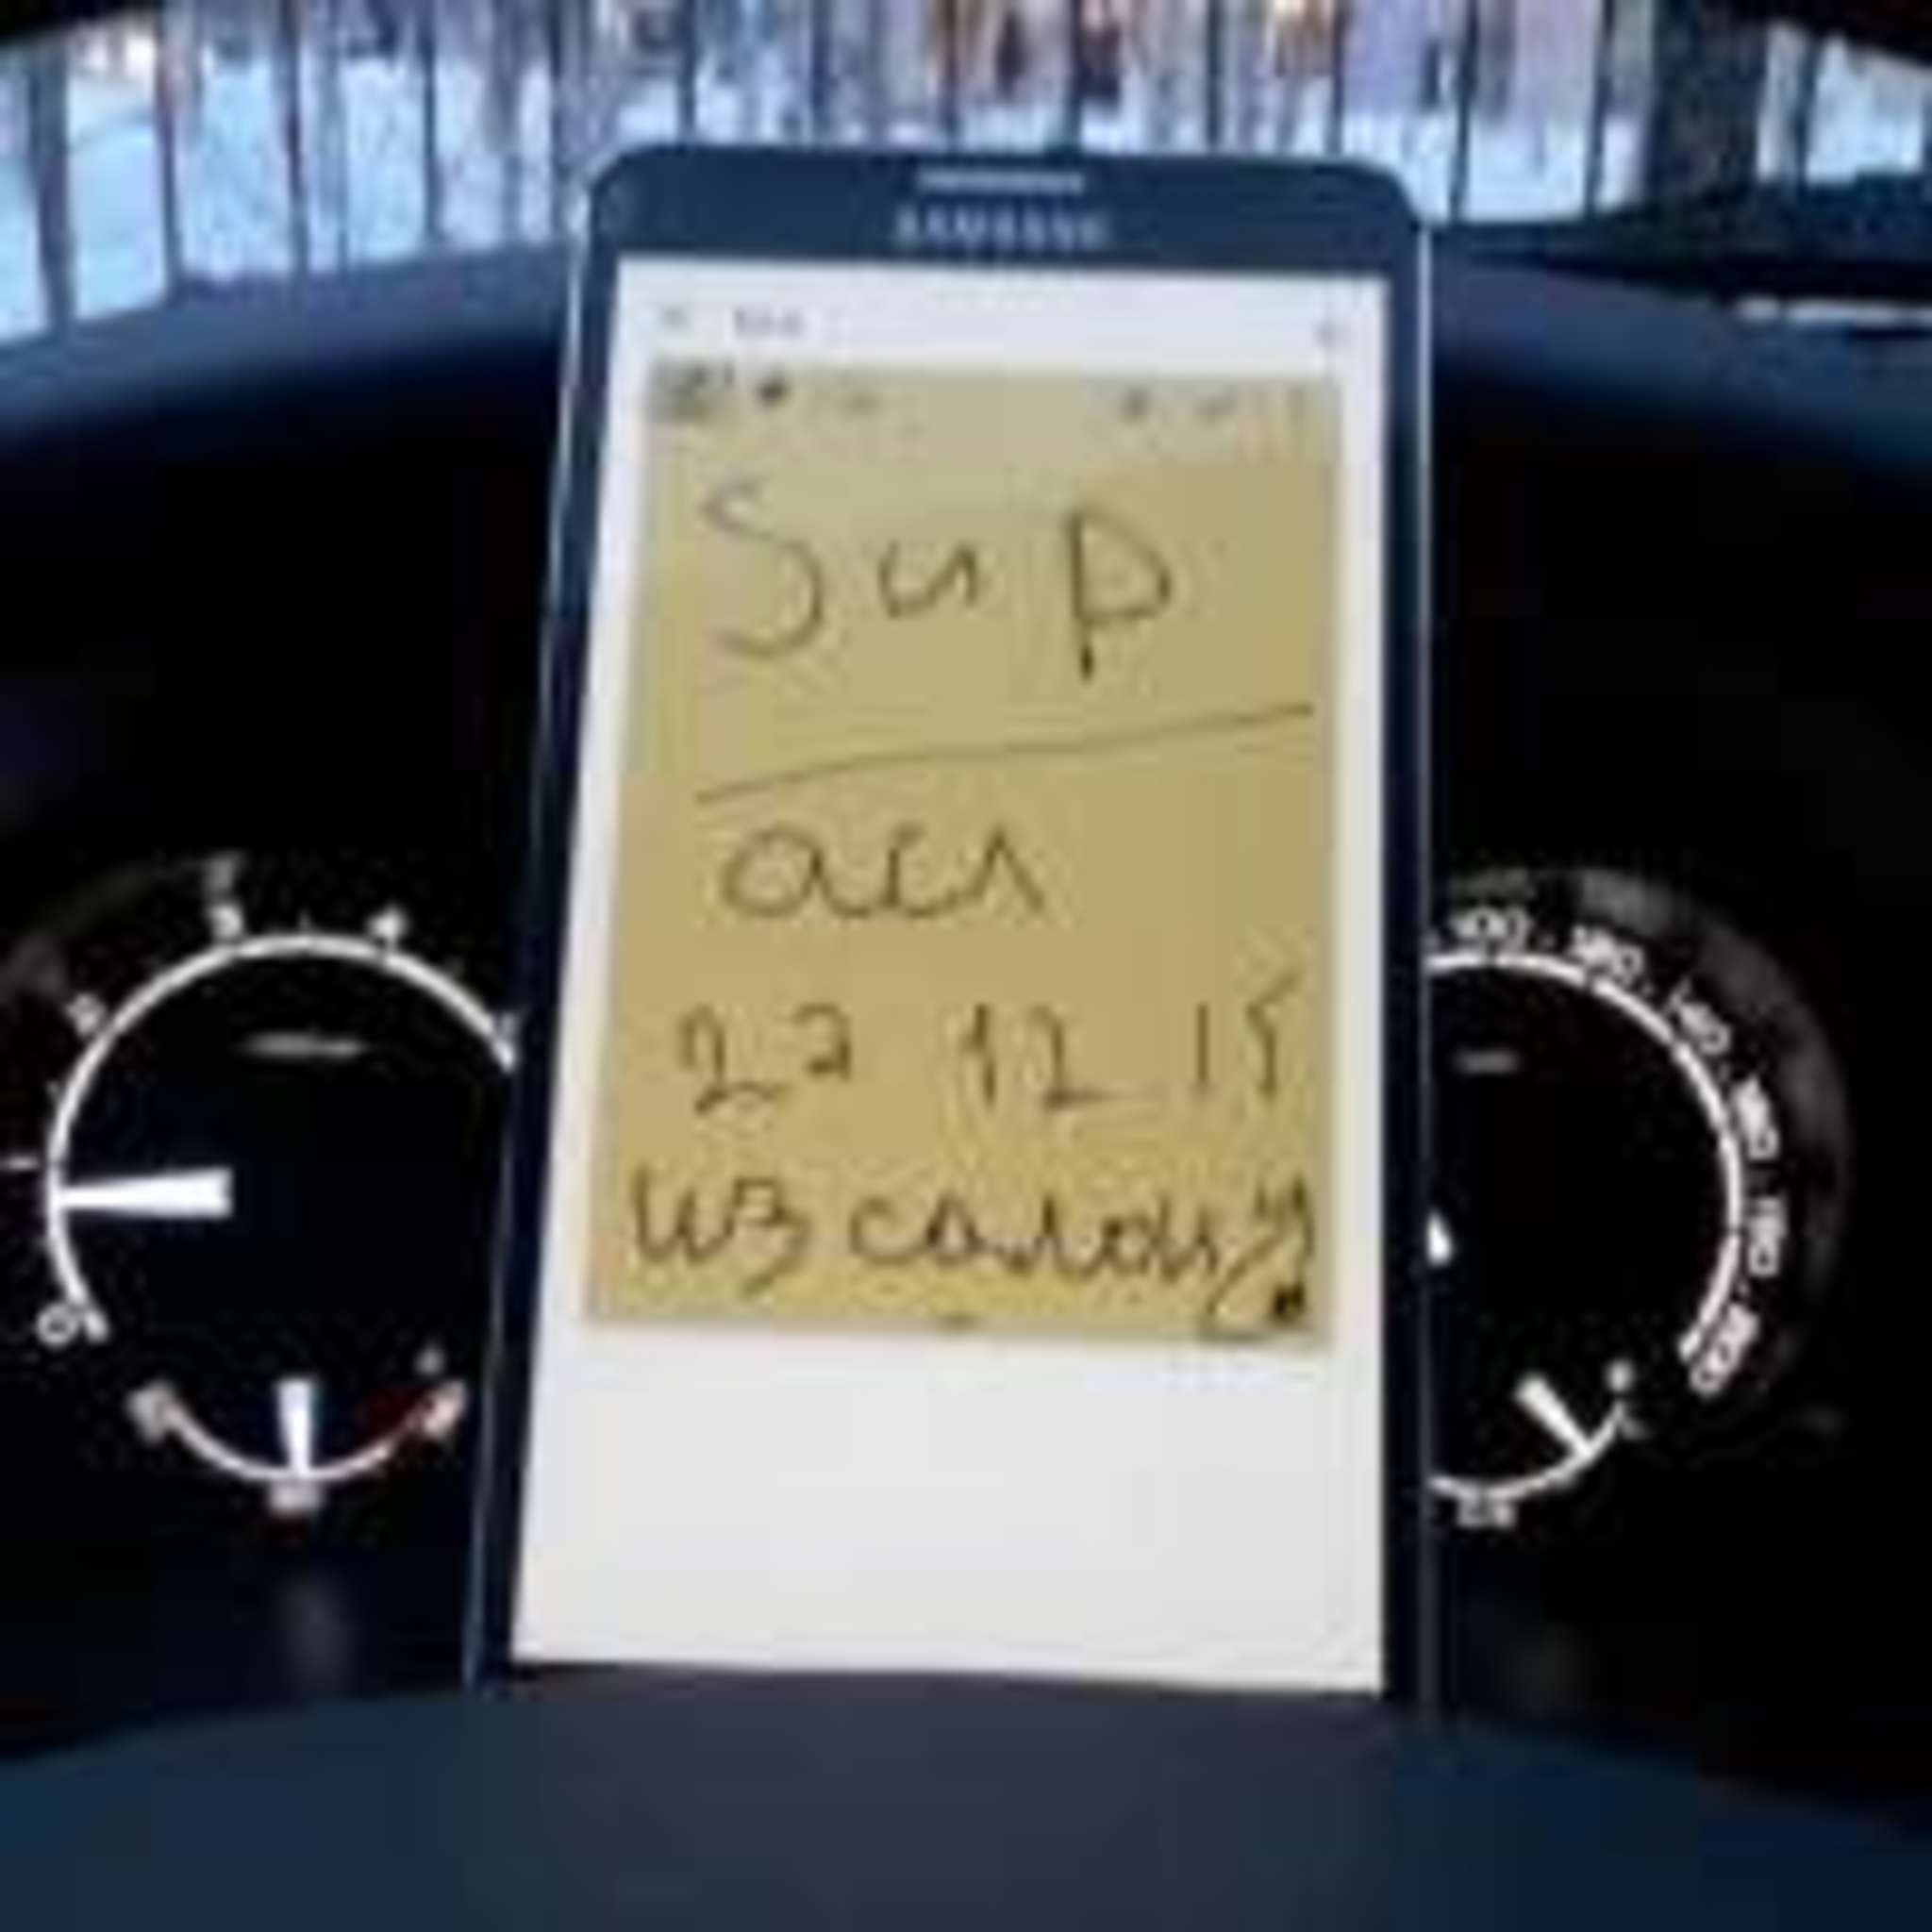 SAMSUNG
Sup
acs
22 12 15
из салону
3
4
2
1
0
100
120
140
160
180
200